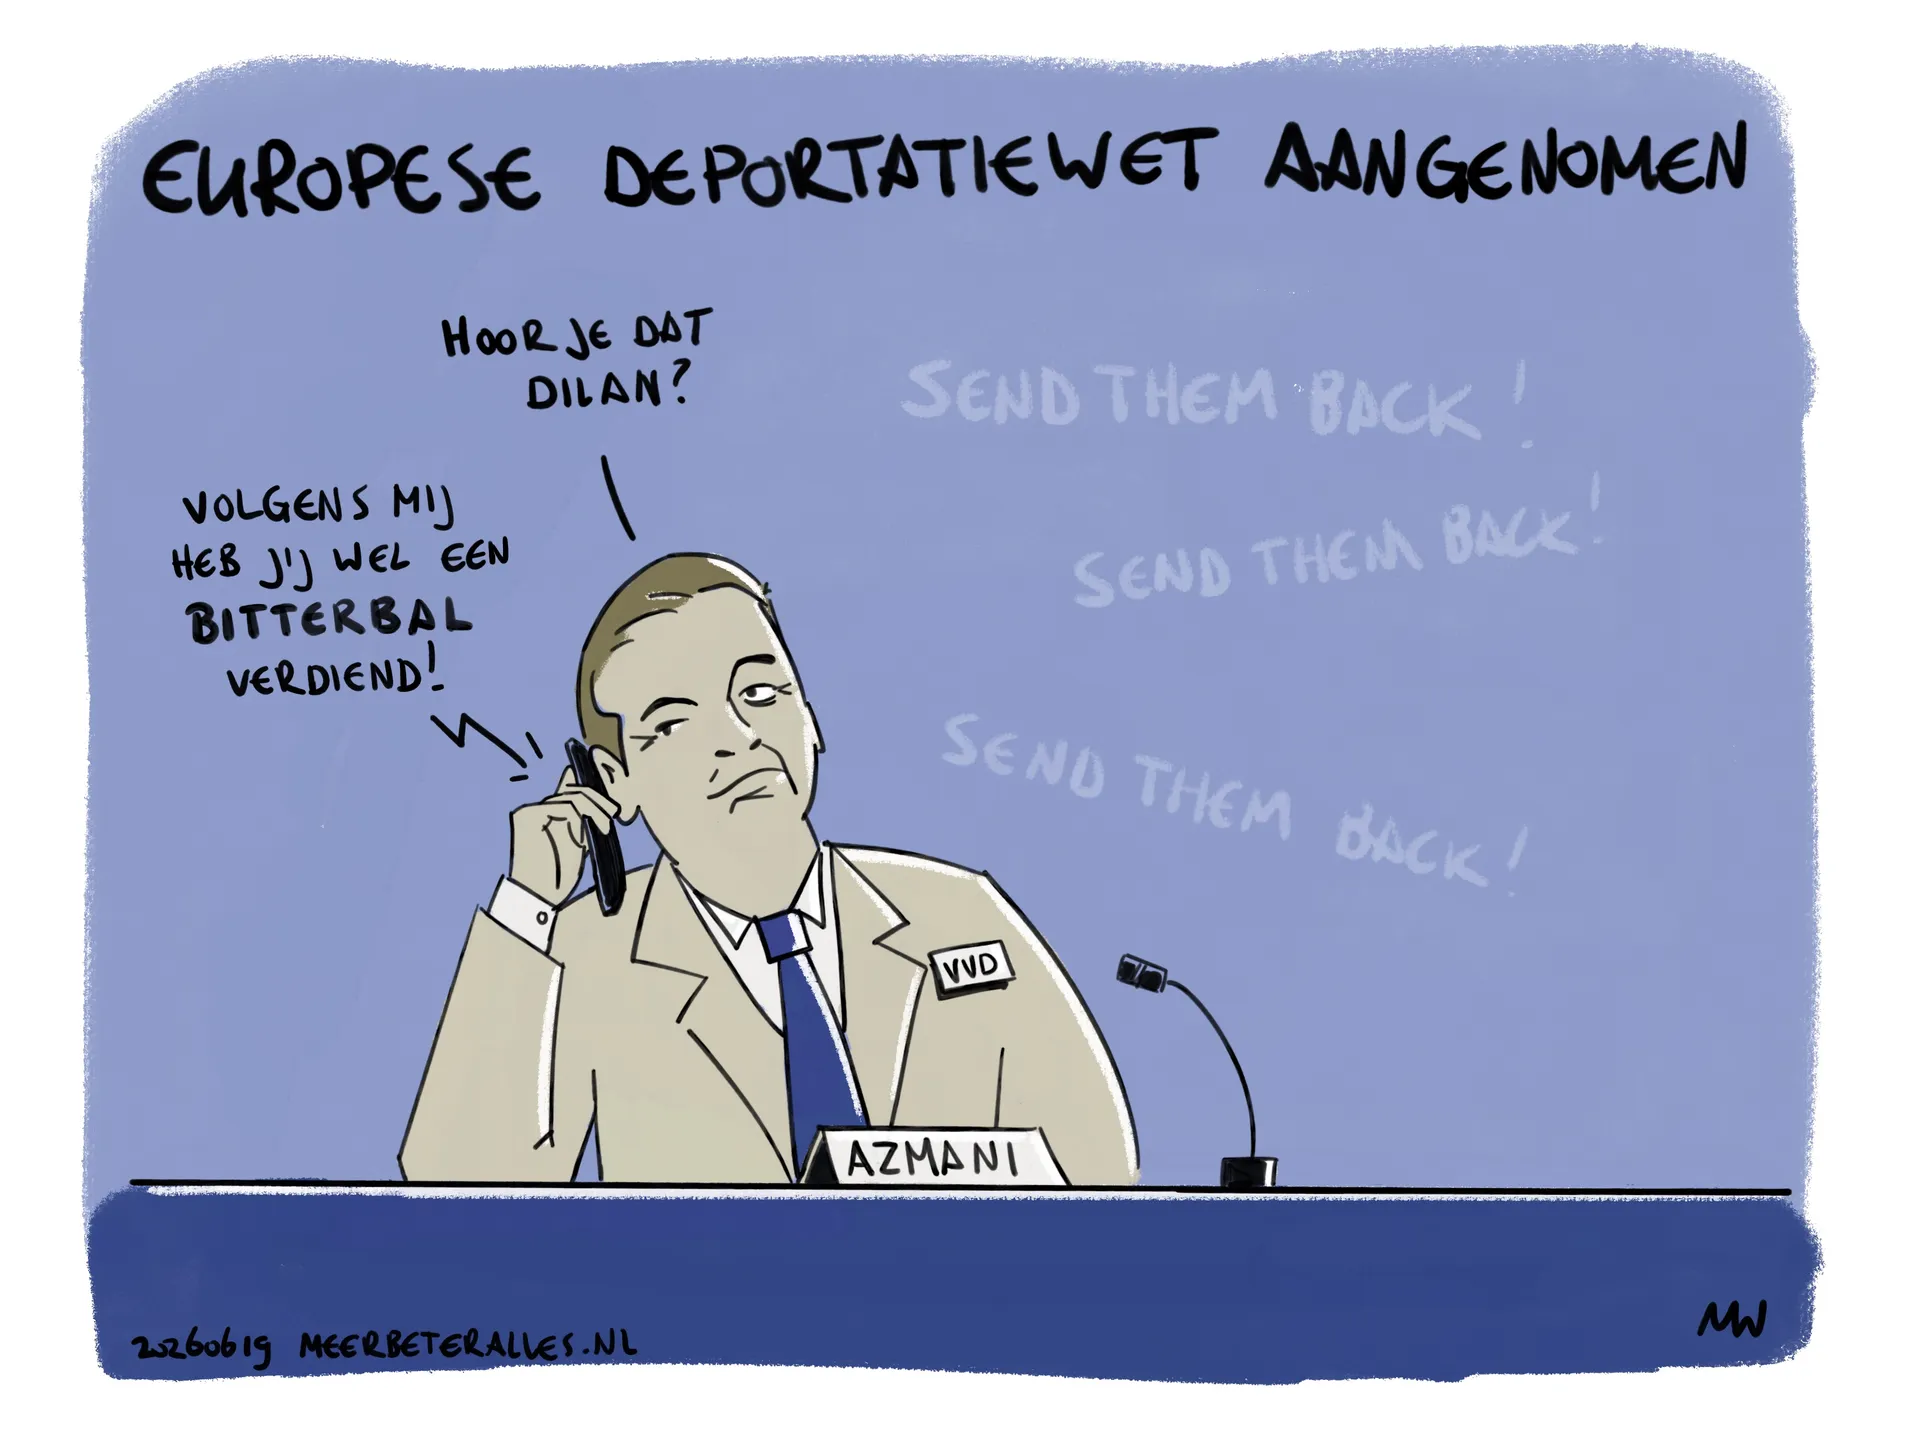 EUROPESE DEPORTATIEWET AANGENOMEN
HOOR JE DAT
DILAN?
VOLGENS MIJ
HEB J'J WEL EEN
BITTERBAL
VERDIEND!
SEND THEM BACK!
SEND THEM BACK!
SEND THEM BACK!
VVD
AZMANI
20260619 MEERBETERALLES.NL
MW